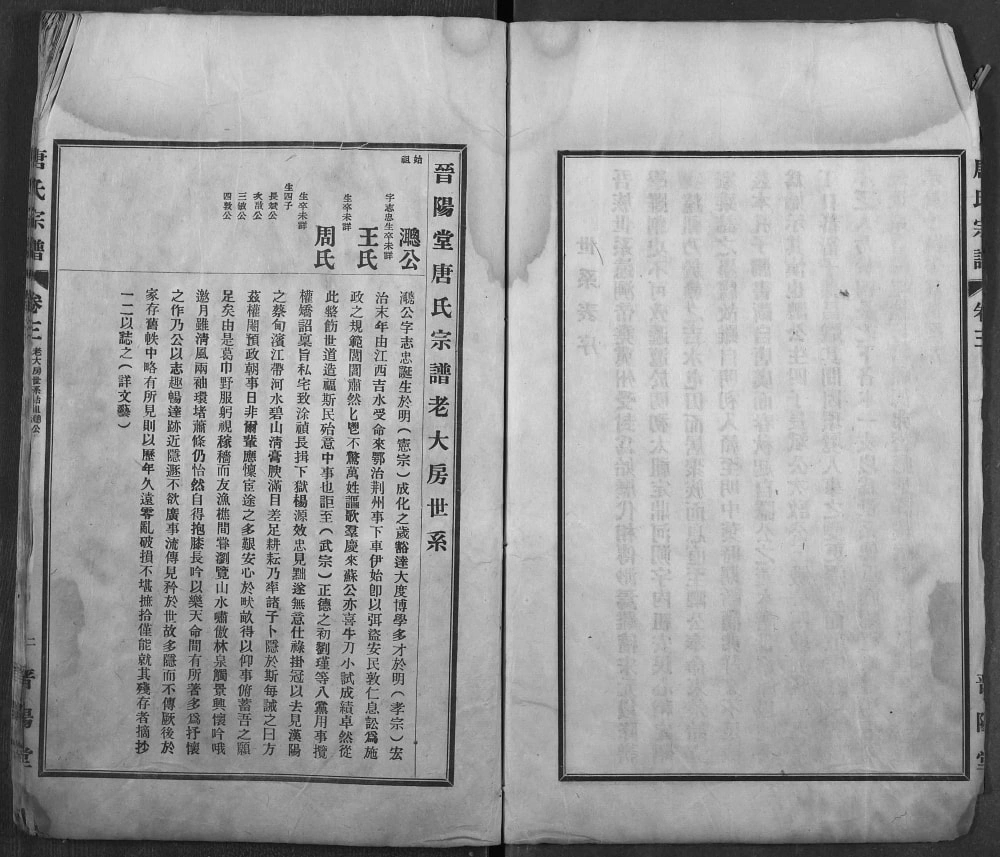 唐氏宗譜
卷三
晉陽堂
晉陽堂唐氏宗譜老大房世系
始祖
鸿公
字志忠生卒未詳
王氏
生卒未詳
周氏
生卒未詳
生四子
長斌公
次㵀公
三敏公
四敦公
鸿公字志忠誕生於明（憲宗）成化之歲豁達大度博學多才於明（孝宗）宏
治末年由江西吉水受命來鄂治荆州事下車伊始卽以弭盜安民敦仁息訟爲施
政之規範閭閻肅然匕鬯不驚萬姓謳歌羣慶來蘇公亦喜牛刀小試成績卓然從
此整飭世道造福斯民殆意中事也詎至（武宗）正德之初劉瑾等八黨用事攬
權矯詔稟旨私宅致涂禎長揖下獄楊源效忠見黜遂無意仕祿掛冠以去見漢陽
之蔡甸濱江帶河水碧山清膏腴滿目差足耕耘乃率諸子卜隱於斯每誡之曰方
茲權閹預政朝事日非爾輩應懍宦途之多艱安心於畎畝得以仰事俯蓄吾之願
足矣由是葛巾野服躬視稼穡而友漁樵間嘗瀏覽山水嘯傲林泉觸景興懷吟哦
邀月雖淸風兩袖環堵蕭條仍怡然自得抱膝長吟以樂天命間有所著多爲抒懷
之作乃公以志趣暢達跡近隱遯不欲廣事流傳見矜於世故多隱而不傳厥後於
家存舊帙中略有所見則以歷年久遠零亂破損不堪摭拾僅能就其殘存者摘抄
一二以誌之（詳文藝）
唐氏宗譜
卷三
老大房世系始祖鸿公
二
晉陽堂